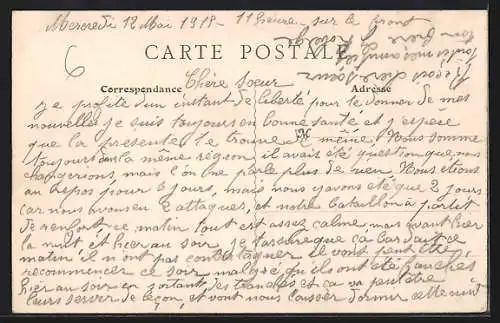 Mercredi 12 Mai 1915 - 11 heure - sur le front
6
CARTE POSTALE
Correspondance
Adresse
Chère Soeur
Je profite d'un instant de liberté pour te donner de mes
nouvelles je suis toujours en bonne santé et j'espère
que la présente te trouve de même. Nous somme
toujours dans la même région il avais été question que nous
changersions mais l'on ne parle plus de rien. Nous étions
au repos pour 6 jours, mais nous y avons été que 2 jours
car nous avons eu 2 attaques, et notre bataillon à partit
de renfort, ce matin tout est assez calme mais avant hier
la nuit et hier au soir, je t'assure que ça bardait ce
matin il n'ont pas contre attaquer il vont peut être
recommencer ce soir malgré qu'ils ont été fauchés
hier au soir en sortant des tranchées et ça va peut être
leurs servir de leçon, et vont nous laisser dormir cette nuit